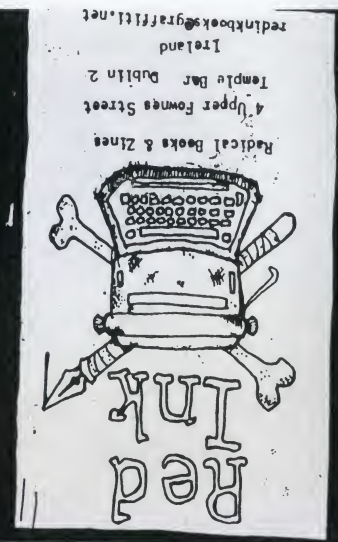 Red
Ink
Radical Books & Zines
4 Upper Fownes Street
Temple Bar Dublin 2
Ireland
redinkbooks@graffiti.net